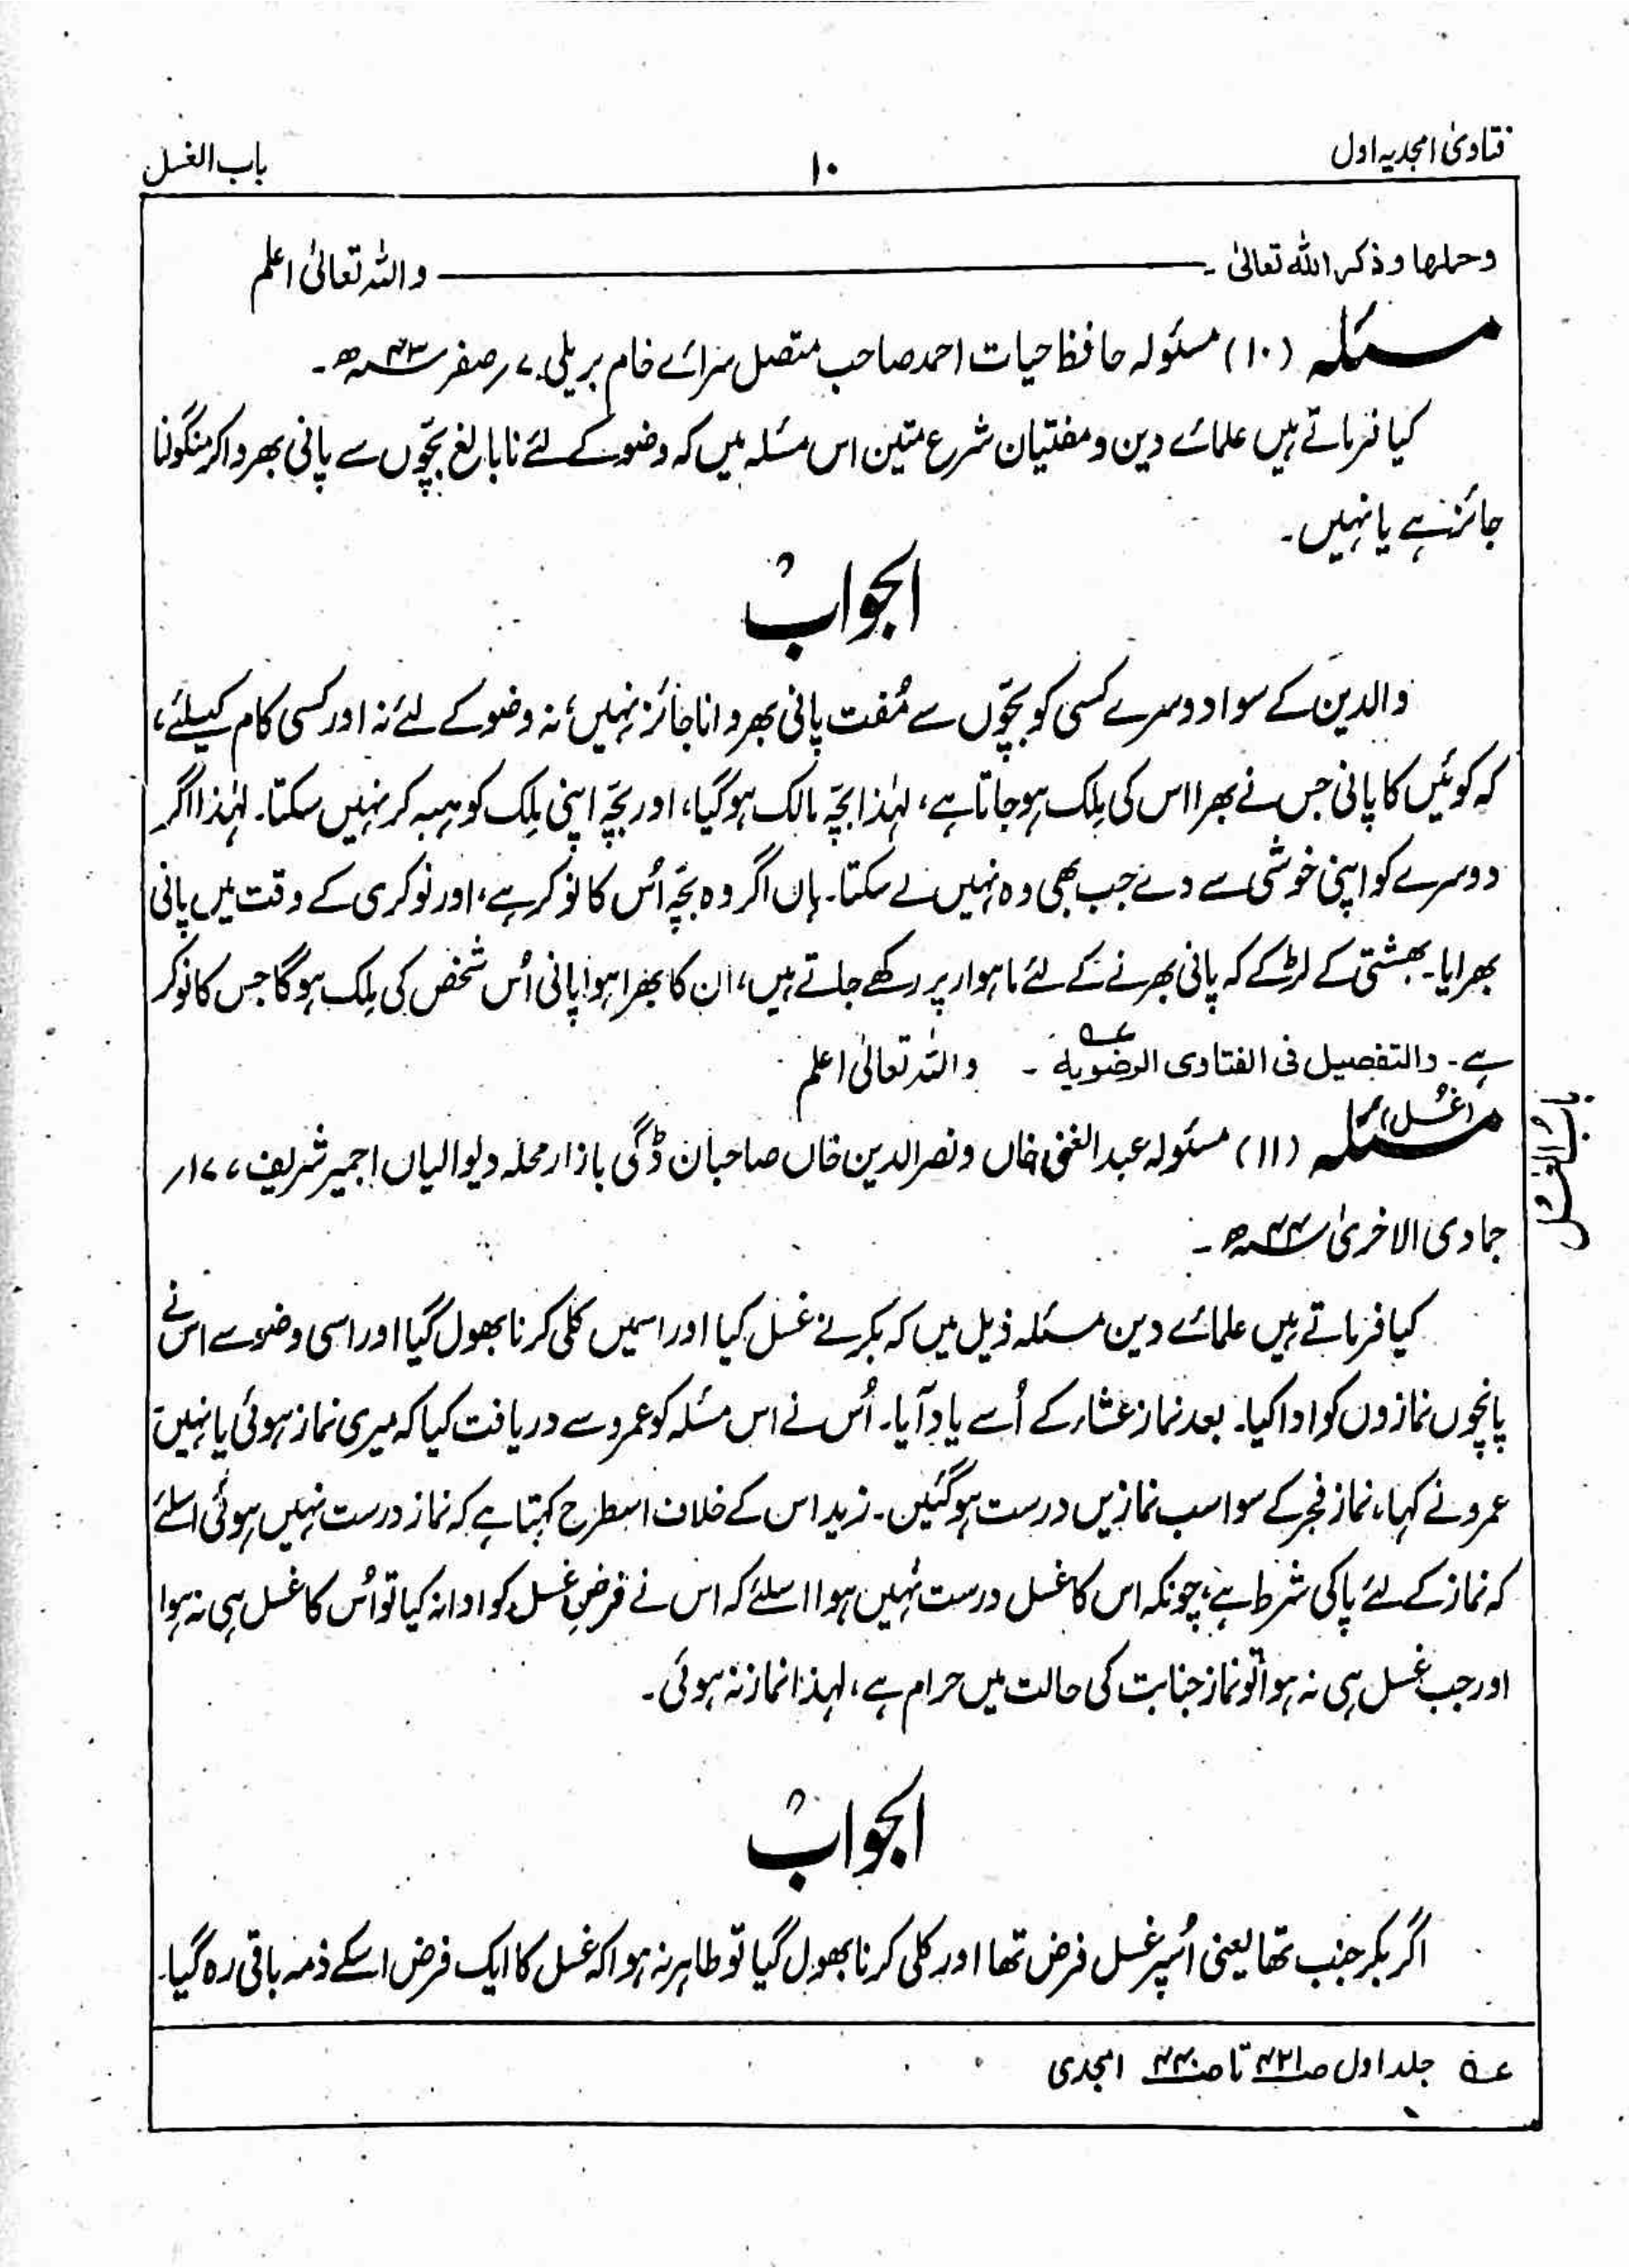 فتاویٰ امجدیہ اول
۱۰
باب الغسل
وحلها وذکر الله تعالیٰ ۔ ــــــــ واللہ تعالیٰ اعلم
مسئلہ (۱۰) مسئولہ حافظ حیات احمد صاحب متصل سرائے خام بریلی ۷ر صفر ۴۳ھ ۔
کیا فرماتے ہیں علمائے دین و مفتیان شرع متین اس مسئلہ میں کہ وضو کے لئے نابالغ بچّوں سے پانی بھرواکر منگونا
جائز ہے یا نہیں ۔
الجواب
والدین کے سوا دوسرے کسی کو بچّوں سے مُفت پانی بھروانا جائز نہیں، نہ وضو کے لئے نہ اور کسی کام کیلئے،
کہ کوئیں کا پانی جس نے بھرا اس کی مِلک ہوجاتا ہے، لہٰذا بچّہ مالک ہوگیا، اور بچّہ اپنی مِلِک کو ہبہ کر نہیں سکتا۔ لہٰذا اگر
دوسرے کو اپنی خوشی سے دے جب بھی وہ نہیں لے سکتا۔ ہاں اگر وہ بچّہ اُس کا نوکر ہے، اور نوکری کے وقت میں پانی
بھرایا۔ بھشتی کے لڑکے کہ پانی بھرنے کے لئے ماہوار پر رکھے جاتے ہیں، ان کا بھرا ہوا پانی اُس شخص کی مِلک ہوگا جس کا نوکر
ہے ۔ والتفصیل فی الفتاوی الرضویة عہ ۔ واللہ تعالیٰ اعلم
(غُسل)
مسئلہ (۱۱) مسئولہ عبدالغنی خاں و نصرالدین خاں صاحبان ڈگی بازار محلہ دیوالیاں اجمیر شریف، ۱۷ر
جمادی الاخریٰ ۴۴ھ ۔
باب الغسل
کیا فرماتے ہیں علمائے دین مسئلہ ذیل میں کہ بکر نے غسل کیا اور اسمیں کلی کرنا بھول گیا اور اسی وضو سے اس نے
پانچوں نمازوں کو ادا کیا۔ بعد نماز عشاء کے اُسے یاد آیا۔ اُس نے اس مسئلہ کو عمرو سے دریافت کیا کہ میری نماز ہوئی یا نہیں؟
عمرو نے کہا، نماز فجر کے سوا سب نمازیں درست ہوگئیں۔ زید اس کے خلاف اسطرح کہتا ہے کہ نماز درست نہیں ہوئی اسلئے
کہ نماز کے لئے پاکی شرط ہے، چونکہ اس کا غسل درست نہیں ہوا اسلئے کہ اس نے فرضِ غسل کو ادا نہ کیا تو اُس کا غسل ہی نہ ہوا
اور جب غسل ہی نہ ہوا تو نماز جنابت کی حالت میں حرام ہے، لہذا نماز نہ ہوئی ۔
الجواب
اگر بکر جنب تھا یعنی اُسپر غسل فرض تھا اور کلی کرنا بھول گیا تو طاہر نہ ہوا کہ غسل کا ایک فرض اسکے ذمہ باقی رہ گیا۔
عہ جلد اول صـ۴۲۱ تا صـ۴۴۰ امجدی